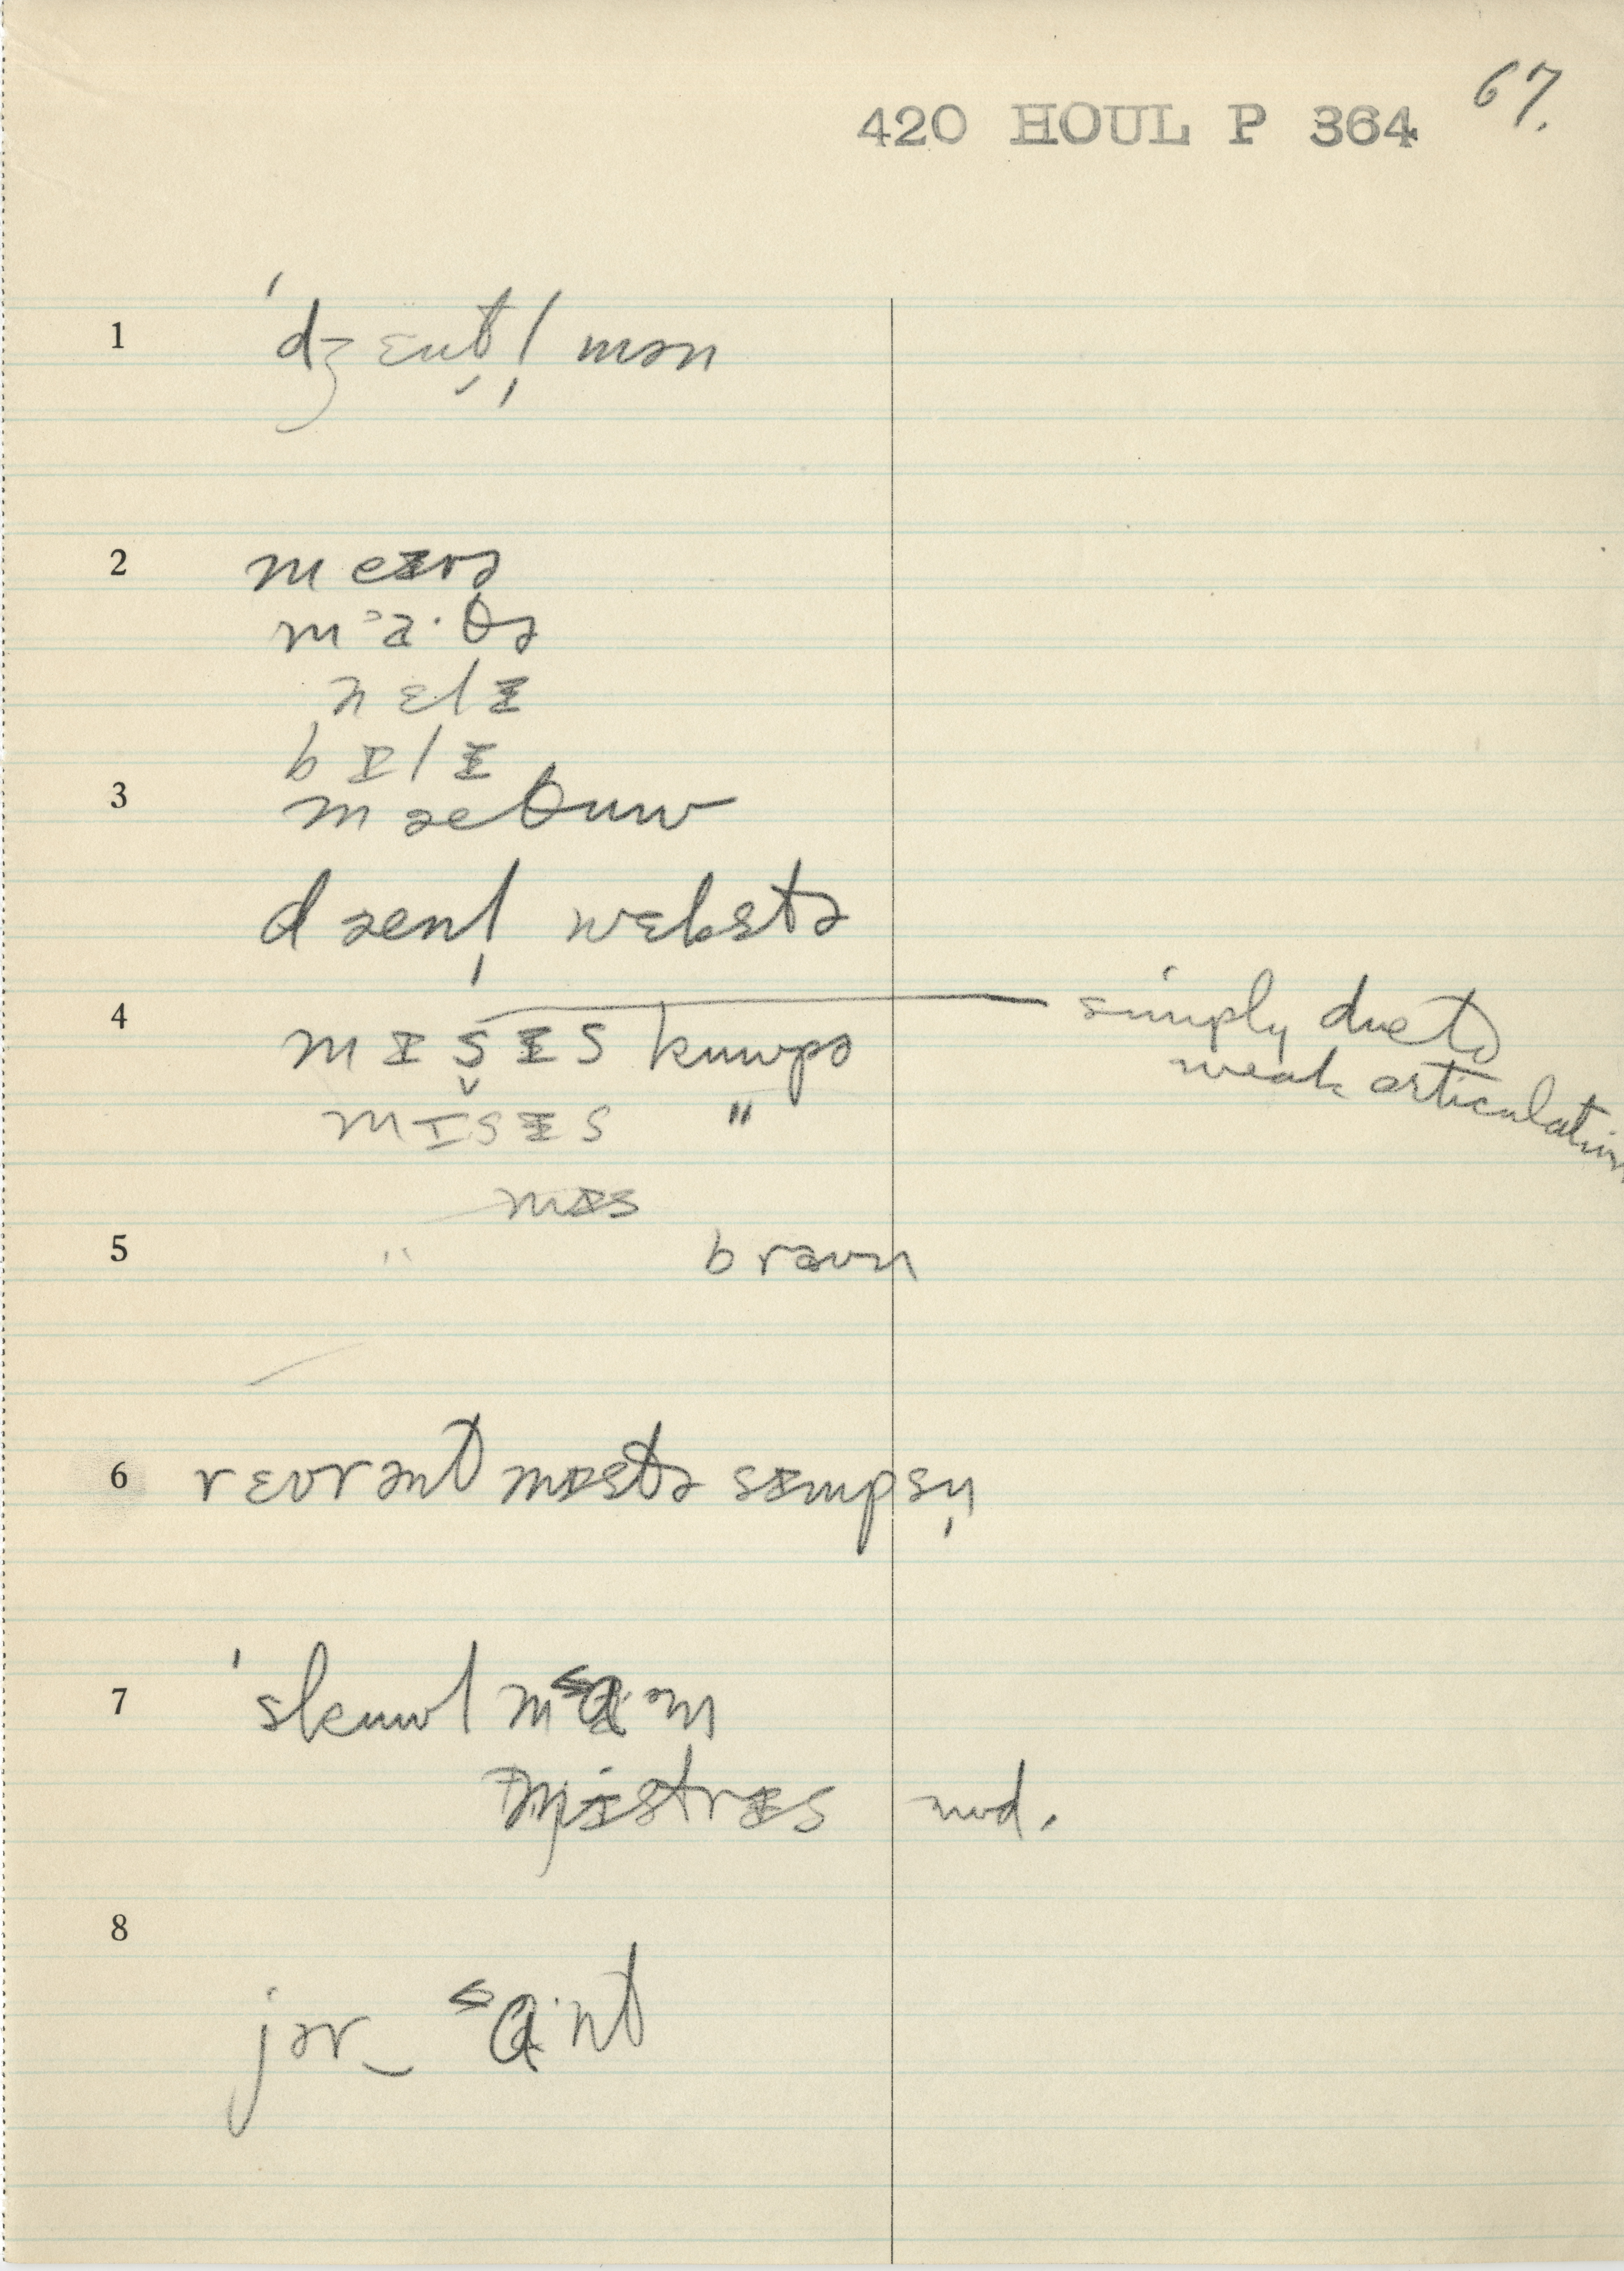 67.
420 HOUL P 364
1 ˈdʒɛnt̬l̩mən
2 meɪrə
mᵊa·θə
nɛlɪ
bɪlɪ
3 mæθuw
dænl̩ wɛbstə
4 mɪs̬ɪs kuwpə simply due to
weak articulation
mɪsɪs "
mɪs
5 " braʊn
6 rɛvrənt mɪstə sɪmpsn̩
7 ˈskuwl mᵋa·ᵊm
mɪstrɪs mod.
8 jər‿ᵋa·nt